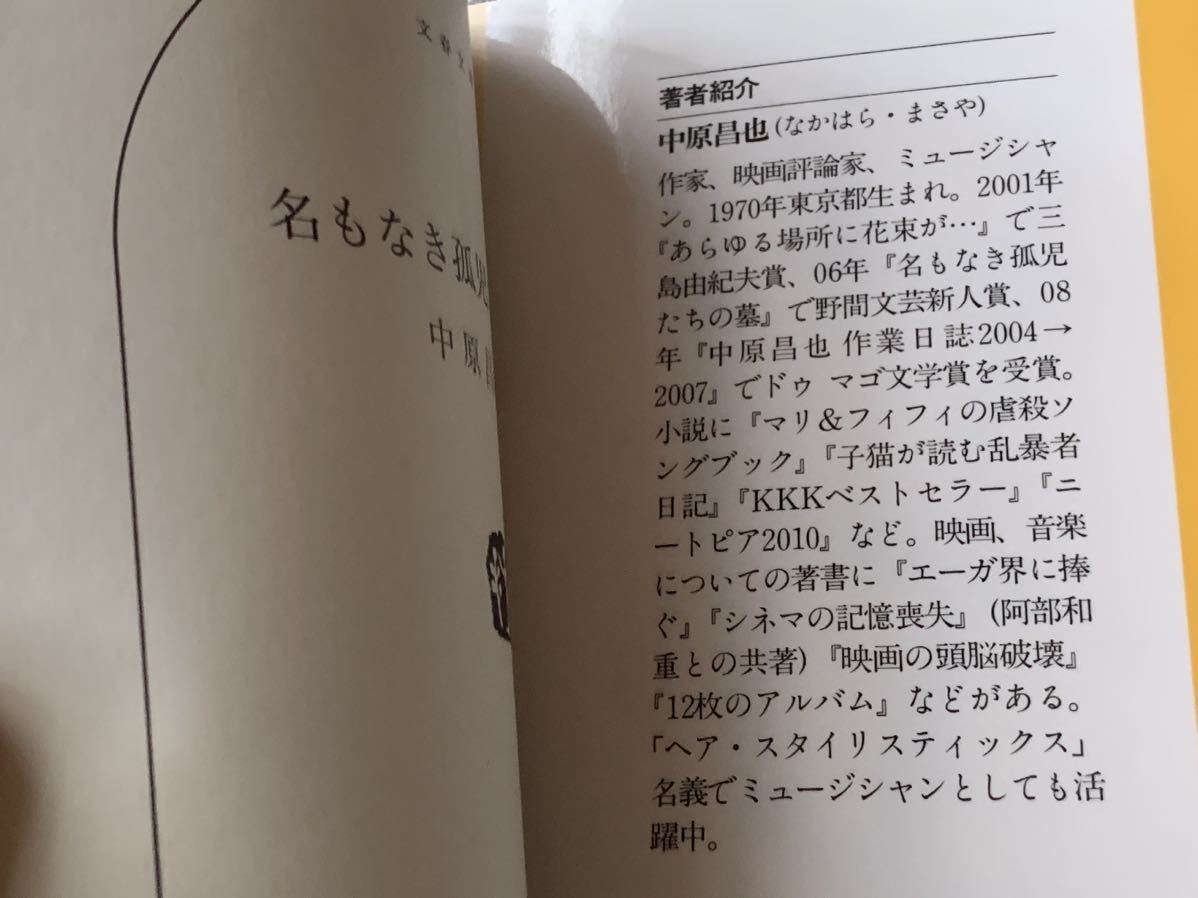 文春文
名もなき孤児
中原
著者紹介
中原昌也(なかはら・まさや)
作家、映画評論家、ミュージシャ
ン。1970年東京都生まれ。2001年
『あらゆる場所に花束が…』で三
島由紀夫賞、06年『名もなき孤児
たちの墓』で野間文芸新人賞、08
年『中原昌也 作業日誌2004→
2007』でドゥ マゴ文学賞を受賞。
小説に『マリ&フィフィの虐殺ソ
ングブック』『子猫が読む乱暴者
日記』『KKKベストセラー』『ニ
ートピア2010』など。映画、音楽
についての著書に『エーガ界に捧
ぐ』『シネマの記憶喪失』(阿部和
重との共著)『映画の頭脳破壊』
『12枚のアルバム』などがある。
「ヘア・スタイリスティックス」
名義でミュージシャンとしても活
躍中。